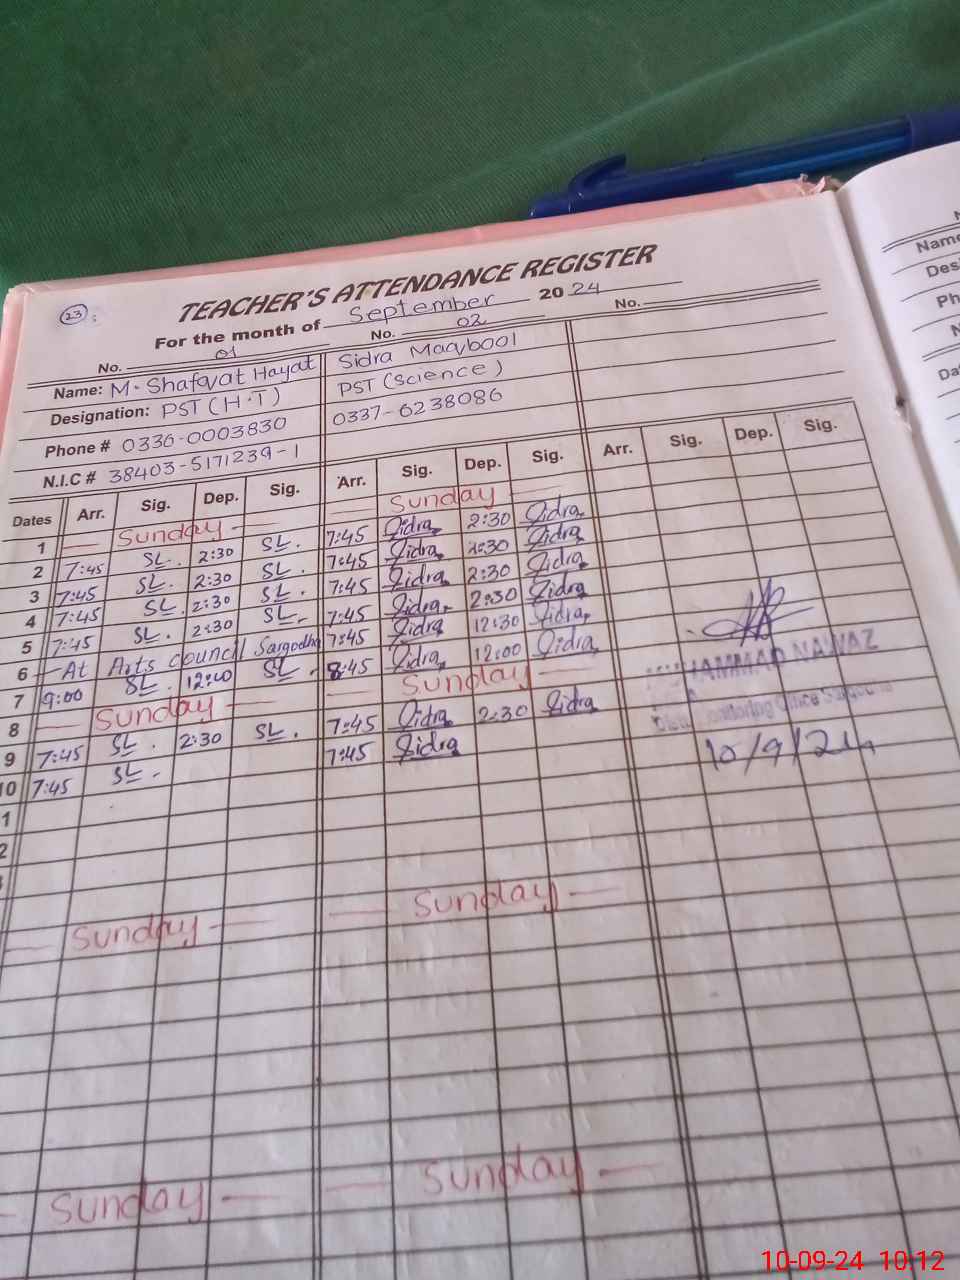 23
TEACHER'S ATTENDANCE REGISTER
For the month of September 2024
No. 01 No. 02 No.
Name: M. Shafqat Hayat Sidra Maqbool
Designation: PST (H.T) PST (Science)
Phone # 0336-0003830 0337-6238086
N.I.C # 38403-5171239-1
Dates Arr. Sig. Dep. Sig. Arr. Sig. Dep. Sig. Arr. Sig. Dep. Sig.
1 Sunday Sunday
2 7:45 SL. 2:30 SL. 7:45 Sidra 2:30 Sidra
3 7:45 SL. 2:30 SL. 7:45 Sidra 2:30 Sidra
4 7:45 SL. 2:30 SL. 7:45 Sidra 2:30 Sidra
5 7:45 SL. 2:30 SL. 7:45 Sidra 2:30 Sidra
6 At Arts Council Sargodha 7:45 Sidra 12:30 Sidra
7 9:00 SL. 12:00 SL. 8:45 Sidra 12:00 Sidra
8 Sunday Sunday
9 7:45 SL. 2:30 SL. 7:45 Sidra 2:30 Sidra
10 7:45 SL. 7:45 Sidra
1
2
Sunday Sunday
Sunday Sunday
MUHAMMAD NAWAZ
Monitoring Office Sargodha
10/9/24
Name
Desi
Ph
N
Da
10-09-24 10:12